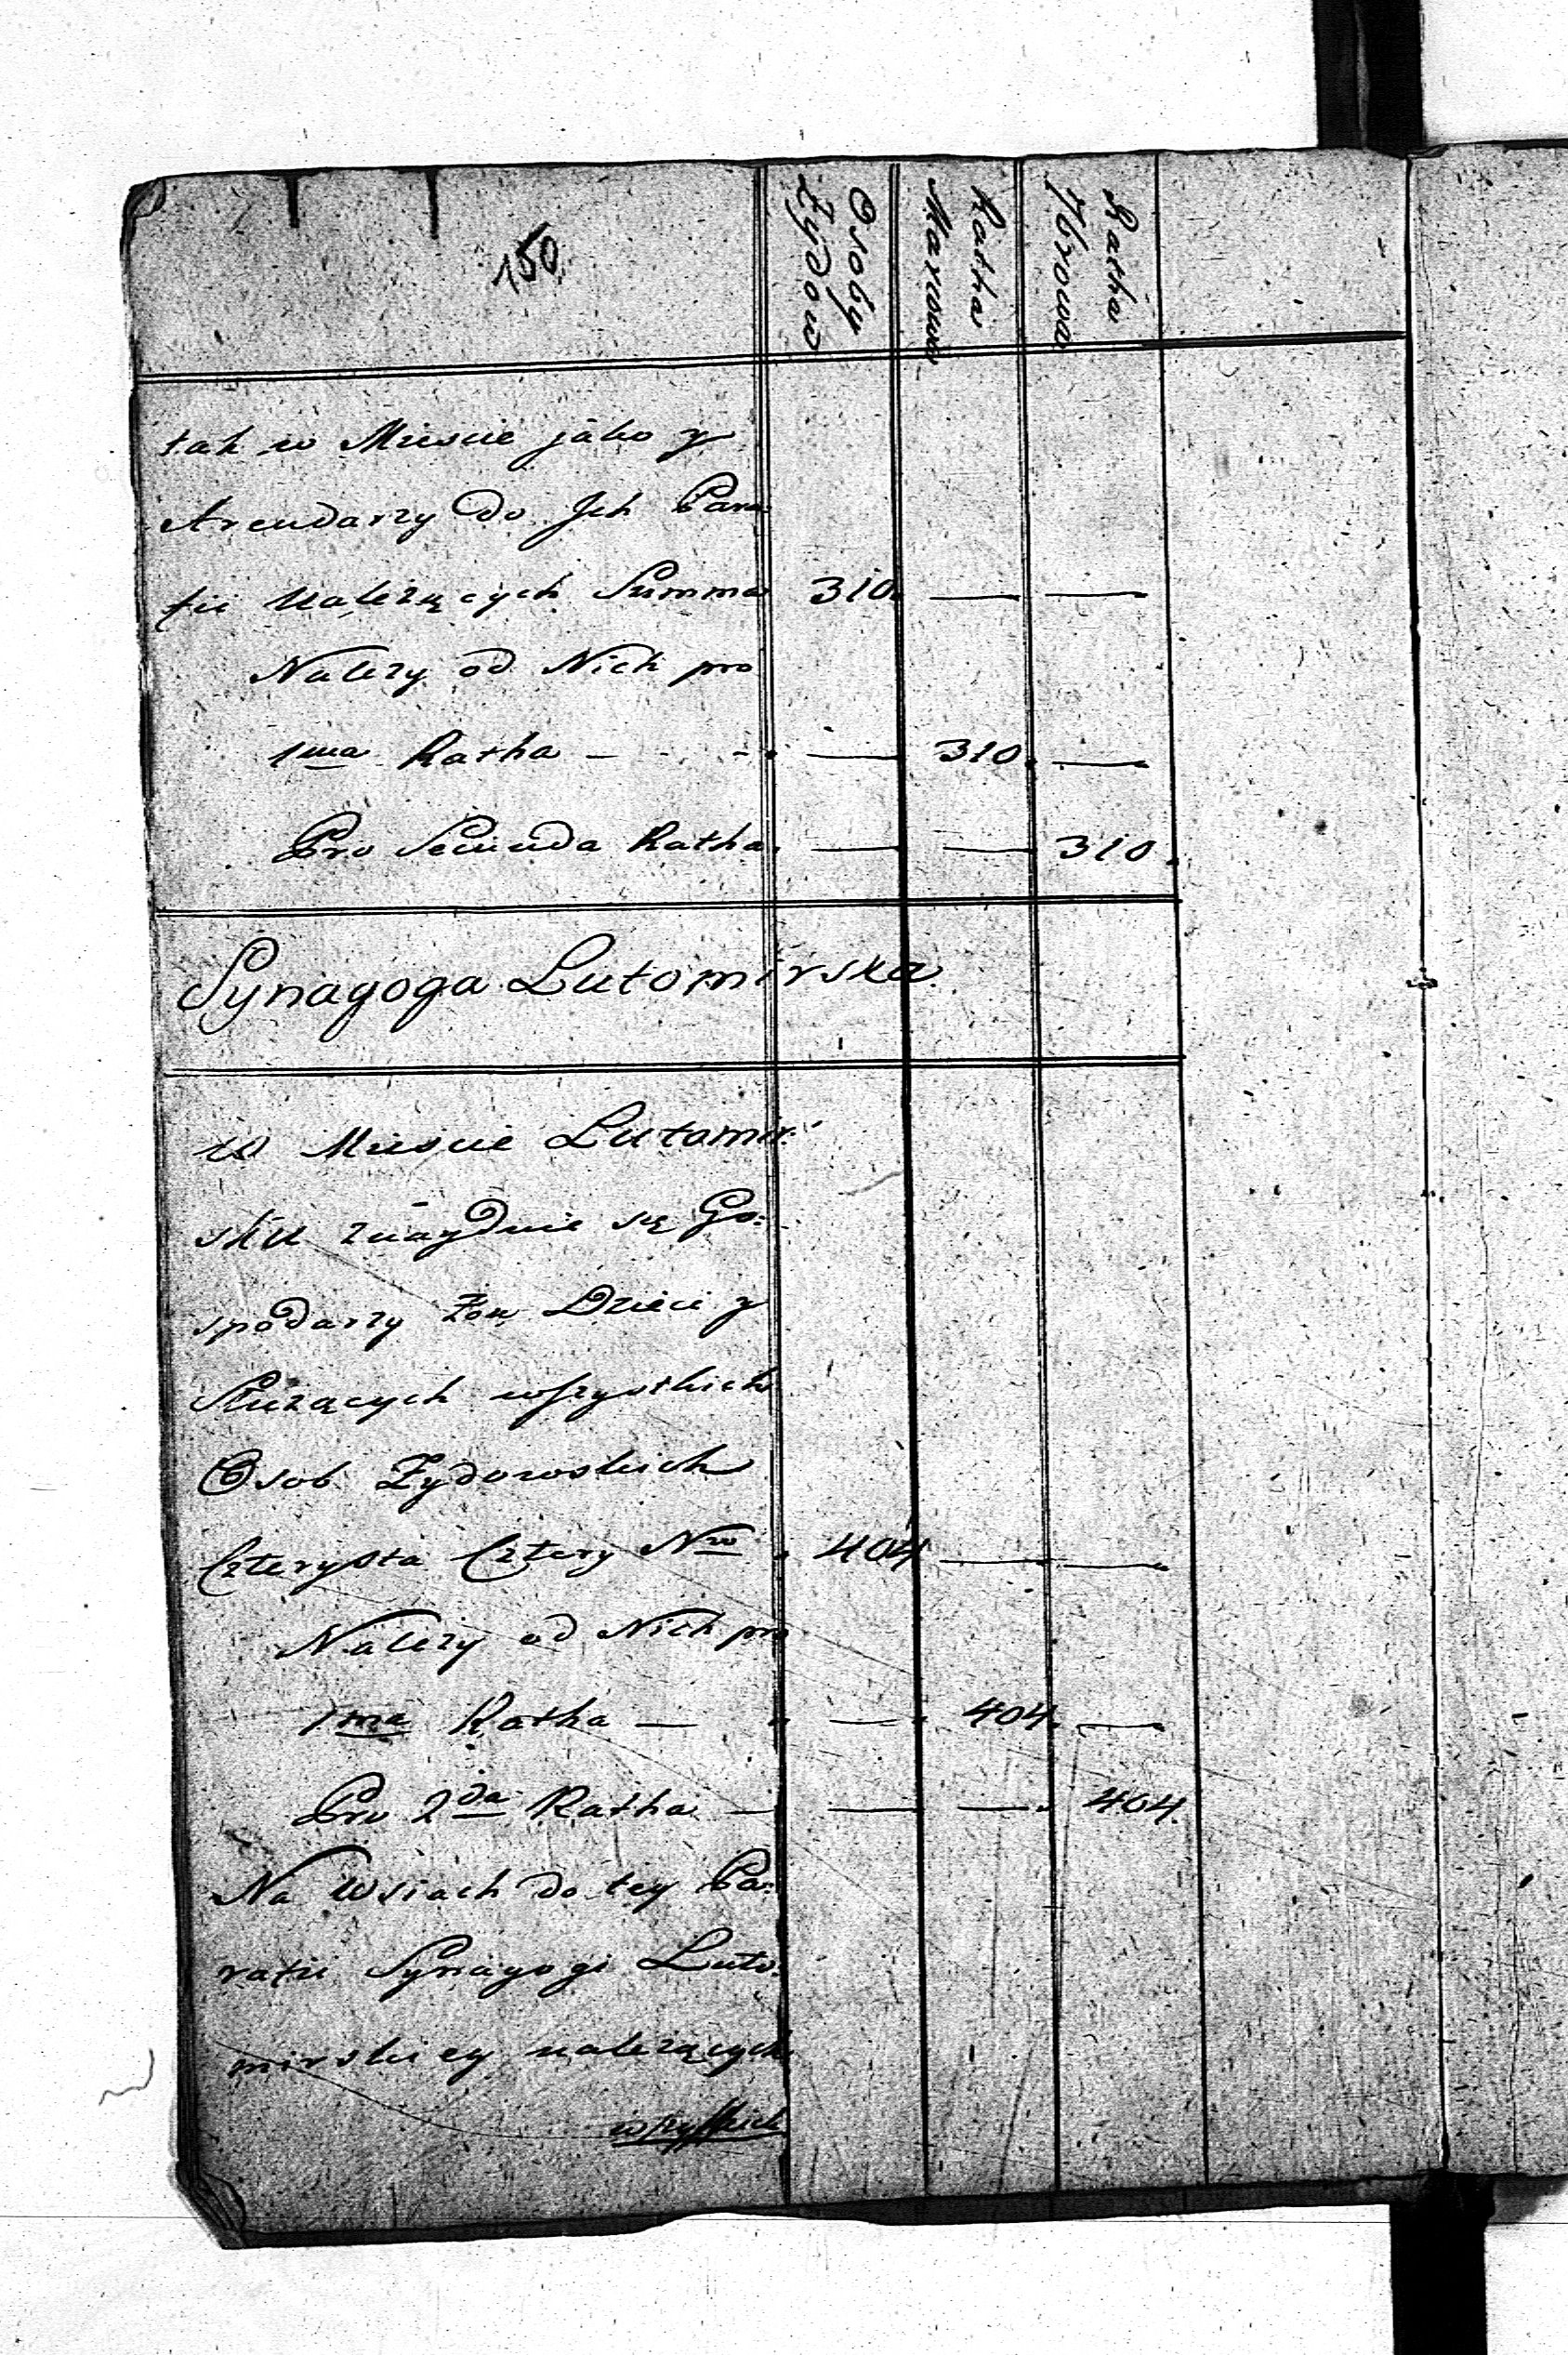 150
Osoby Zydow
Ratha Marcowa
Ratha 7browa
tak w Miescie jako y
Arendarzy do Jch Para
fii Należących Summa 310. — —
Nalezy od Nich pro
1ma Ratha — — 310. —
Pro Secunda Ratha. — — 310.
Synagoga Lutomirska.
W Miescie Lutomir:
sku znayduie się Go:
spodarzy Żon Dzieci y
Służących wszystkich
Osob Zydowskich
Czterysta Cztery Nro. 404 — —
Nalezy od Nich pro
1ma Ratha — — 404. —
Pro 2da Ratha — — — 404.
Na Wsiach do tey Pa:
rafii Synagogi Luto:
mirskiey należących
wszystkich